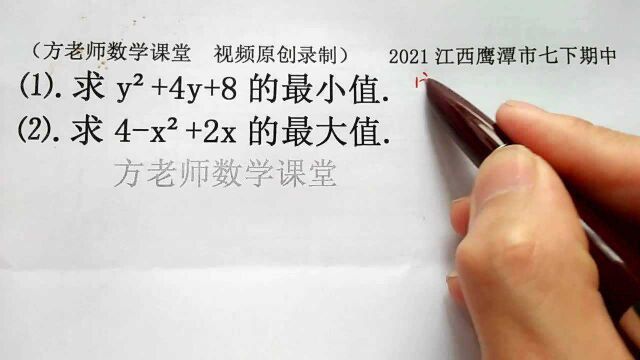 （方老师数学课堂 视频原创录制） 2021江西鹰潭市七下期中
⑴. 求 y²+4y+8 的最小值.
⑵. 求 4-x²+2x 的最大值.
方老师数学课堂